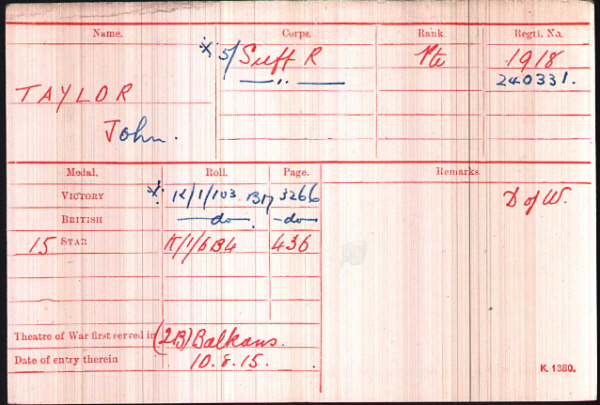 Name. Corps. Rank. Regtl. No.
* 5/ Suff R Pte 1918
—〃— 240331.
TAYLOR
John.
Medal. Roll. Page. Remarks.
VICTORY * K/1/103 B17 3266 D of W.
BRITISH —do— —do—
15 STAR K/1/6B4 436
Theatre of War first served in (2B) Balkans.
Date of entry therein 10.8.15.
K. 1380.